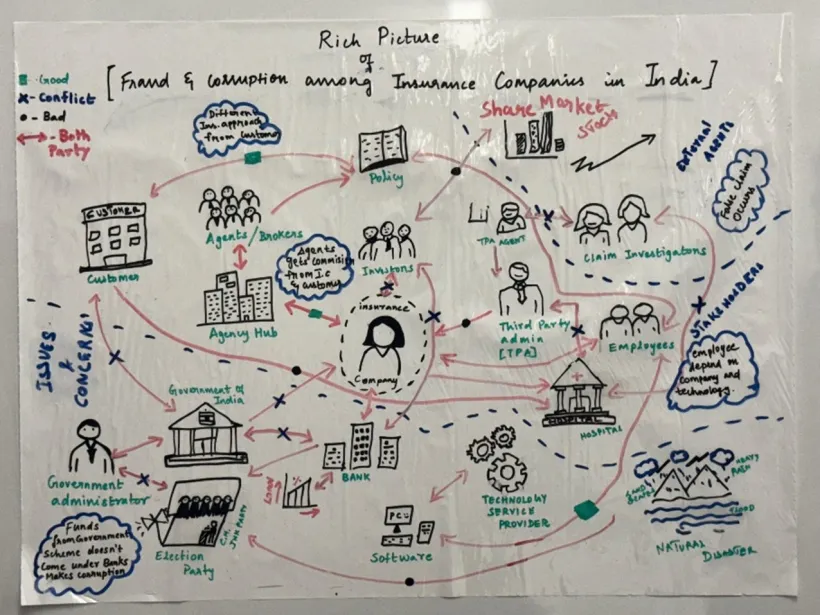 Rich Picture
of
[Fraud & corruption among Insurance Companies in India]
- Good
x - Conflict
• - Bad
↔ - Both
Party
Different
Ins. approach
from customer
Share Market
Stocks
EXTERNAL
AGENTS
Fake claim
occurs
Policy
CUSTOMER
Customer
Agents/Brokers
Agents
gets commision
from I.C
& customer
Investors
TPA AGENT
Claim Investigatons
Agency Hub
insurance
Company
Third Party
admin
[TPA]
Employees
STAKEHOLDERS
employee
depend on
company and
technology.
ISSUES
&
CONCERNS
Government of
India
HOSPITAL
HOSPITAL
Government
administrator
BANK
TECHNOLOGY
SERVICE
PROVIDER
PCU
Software
HEAVY
RAIN
FLOOD
NATURAL
DISASTER
Election
Party
Funds
from Government
Scheme doesn't
come under Banks
Makes corruption